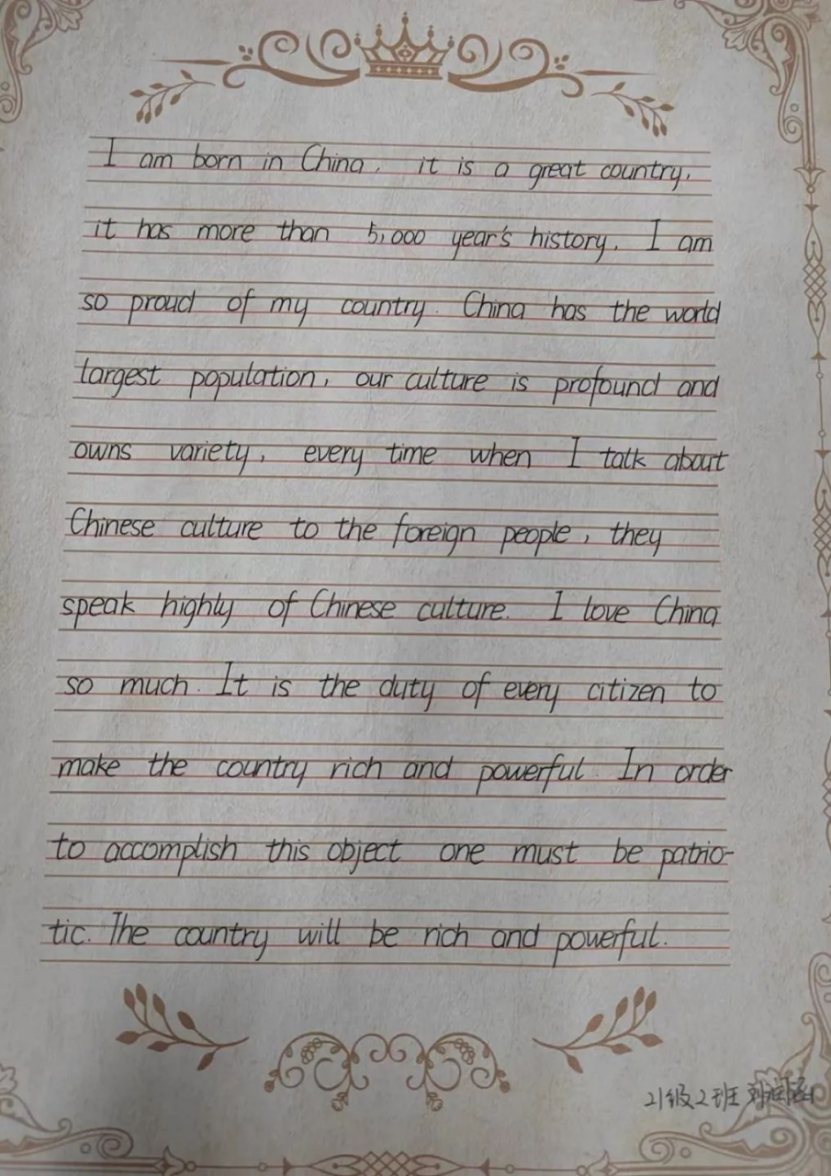 I am born in China, it is a great country,
it has more than 5,000 year's history. I am
so proud of my country. China has the world
largest population, our culture is profound and
owns variety, every time when I talk about
Chinese culture to the foreign people, they
speak highly of Chinese culture. I love China
so much. It is the duty of every citizen to
make the country rich and powerful. In order
to accomplish this object one must be patrio-
tic. The country will be rich and powerful.
21级2班